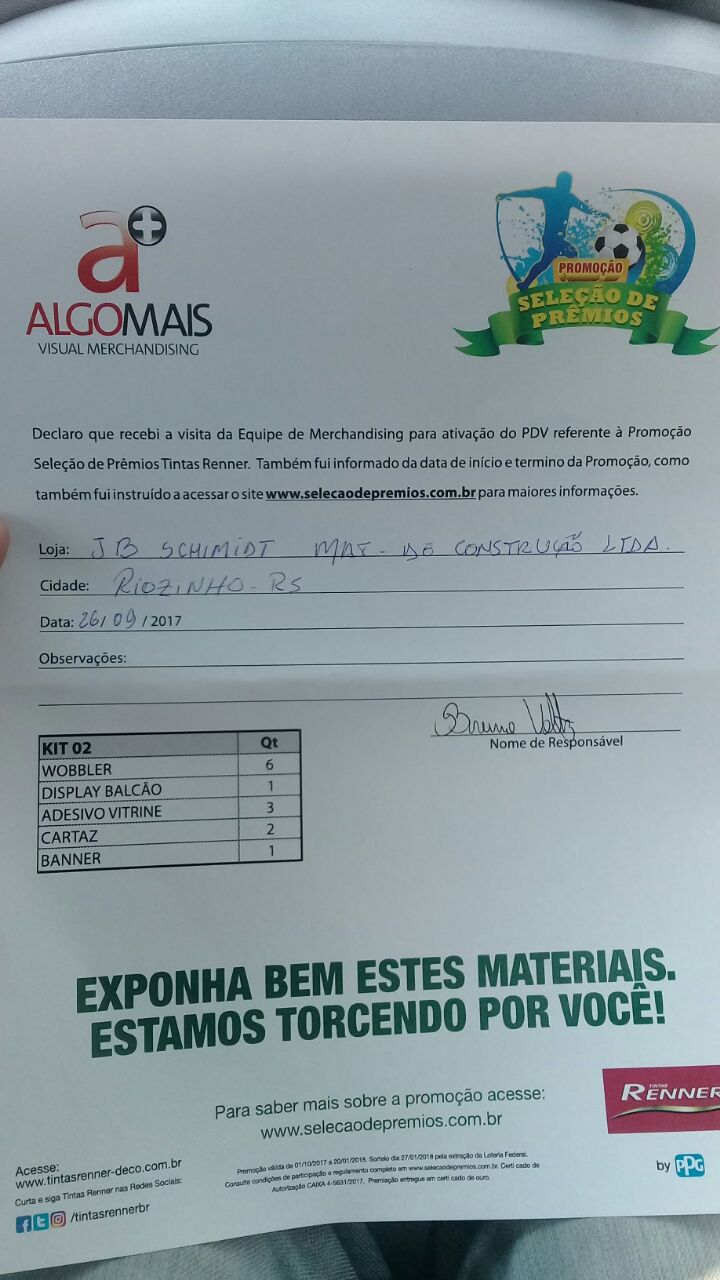 a+
ALGOMAIS
VISUAL MERCHANDISING
PROMOÇÃO
SELEÇÃO DE
PRÊMIOS
Declaro que recebi a visita da Equipe de Merchandising para ativação do PDV referente à Promoção
Seleção de Prêmios Tintas Renner. Também fui informado da data de início e termino da Promoção, como
também fui instruído a acessar o site www.selecaodepremios.com.br para maiores informações.
Loja: JB SCHIMIDT MAT- DE CONSTRUÇÃO LTDA.
Cidade: RIOZINHO-RS
Data: 26/09/2017
Observações:
Bruno Veltz
Nome de Responsável
KIT 02 Qt
WOBBLER 6
DISPLAY BALCÃO 1
ADESIVO VITRINE 3
CARTAZ 2
BANNER 1
EXPONHA BEM ESTES MATERIAIS.
ESTAMOS TORCENDO POR VOCÊ!
Para saber mais sobre a promoção acesse:
www.selecaodepremios.com.br
TINTAS
RENNER
by PPG
Acesse:
www.tintasrenner-deco.com.br
Curta e siga Tintas Renner nas Redes Sociais:
/tintasrennerbr
Promoção válida de 01/10/2017 a 20/01/2018. Sorteio dia 27/01/2018 pela extração da Loteria Federal.
Consulte condições de participação e regulamento completo em www.selecaodepremios.com.br. Certi cado de
Autorização CAIXA 4-5631/2017. Premiação entregue em certi cado de ouro.